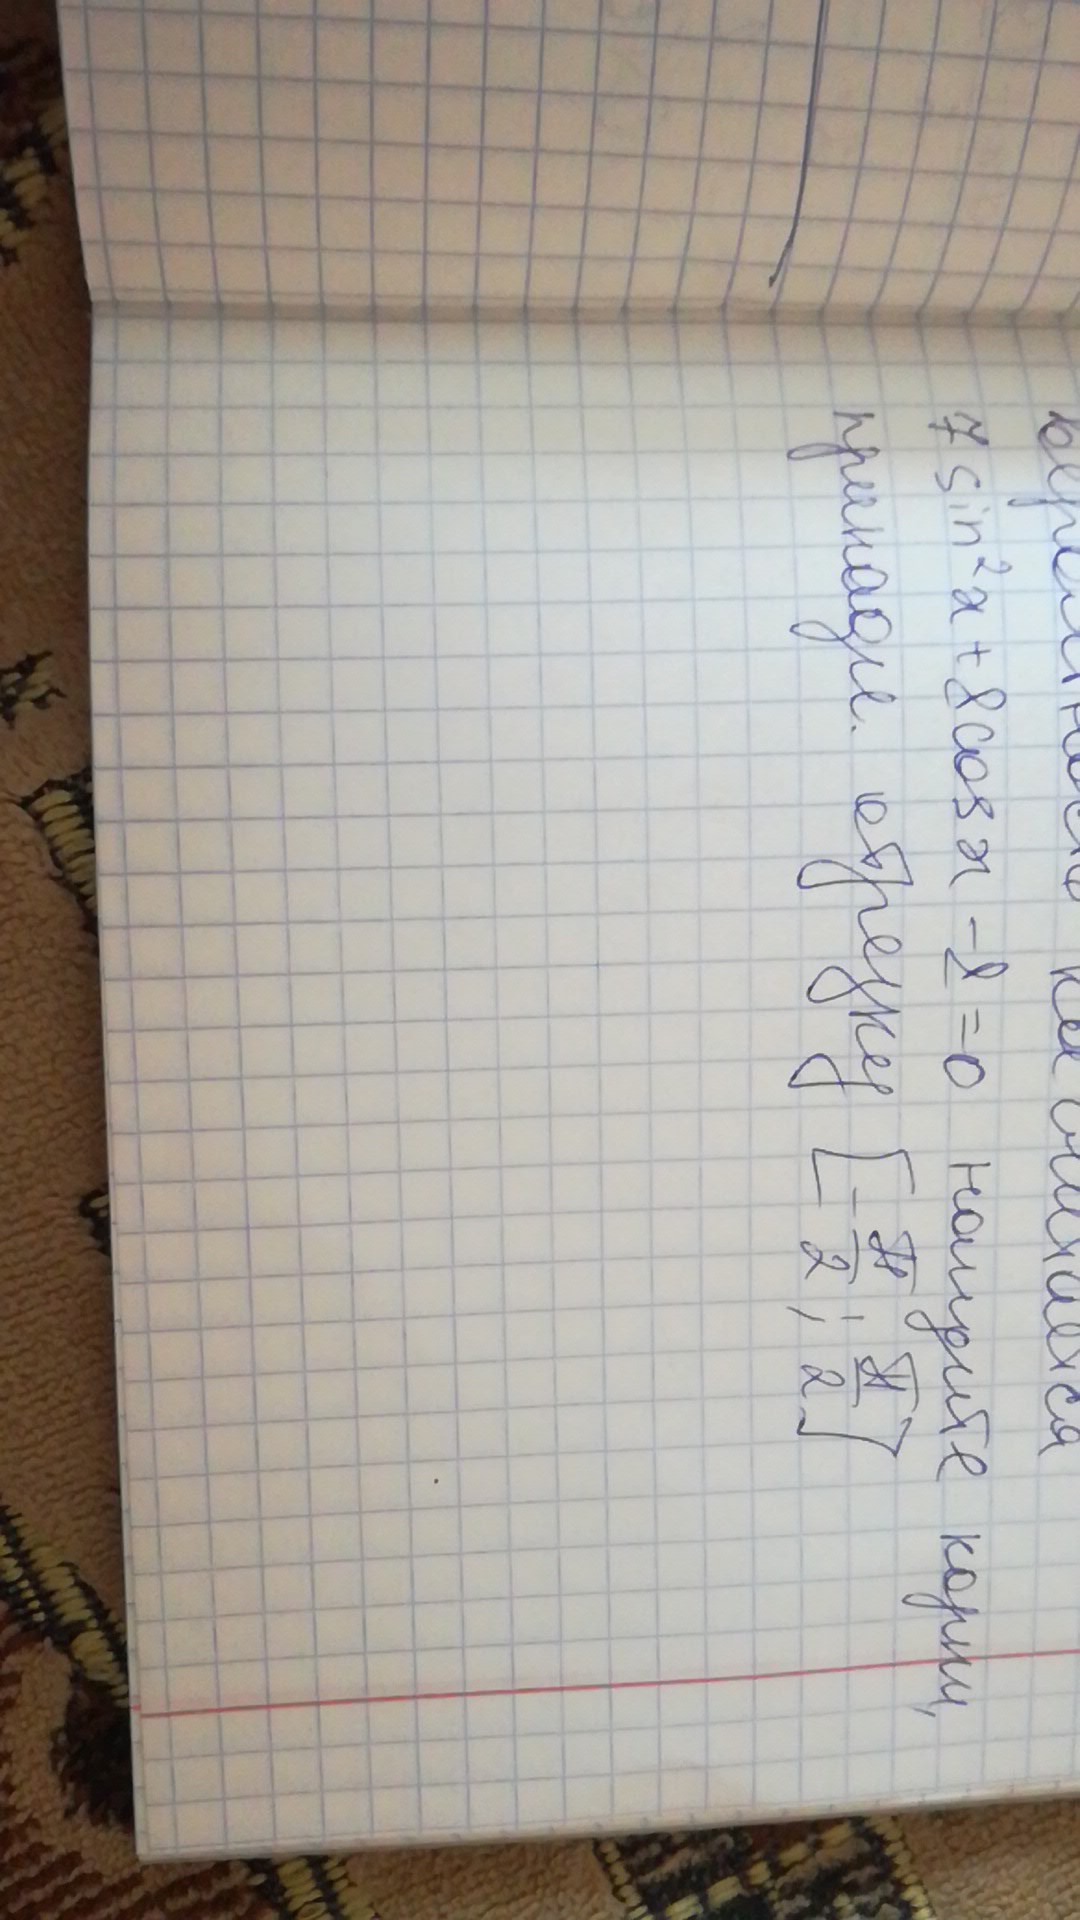 7 sin²x + 8 cos x - 8 = 0 найдите корни,
принадл. отрезку [-π/2; π/2]